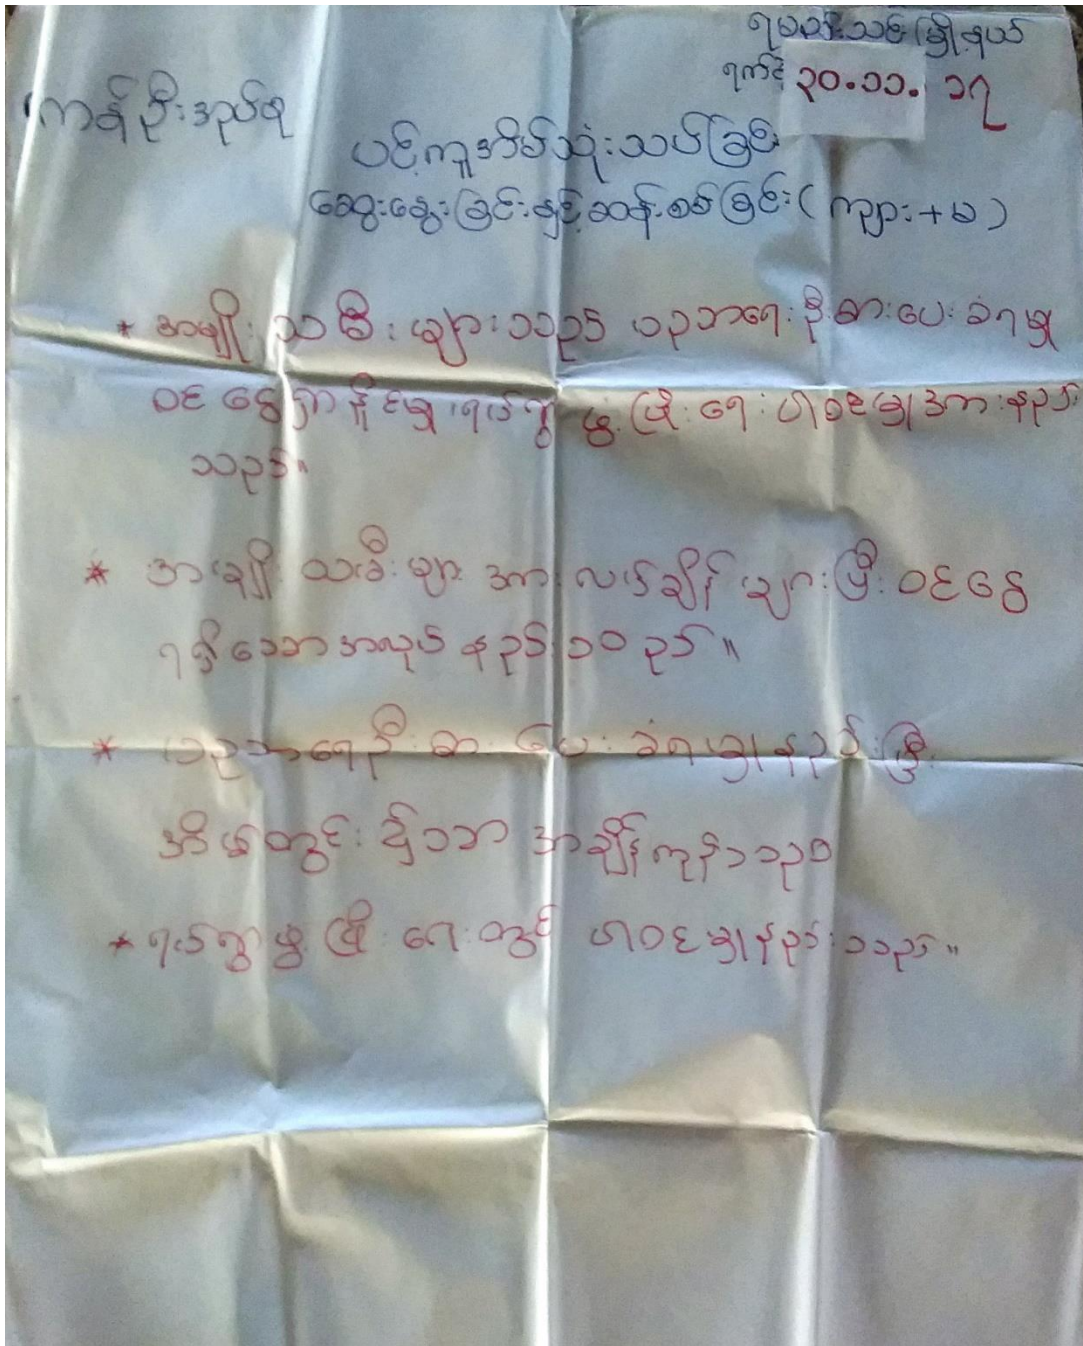 ရမည်းသင်းမြို့နယ်
ရက်စွဲ ၃၀.၁၁.၁၇
ကန်ဦးအုပ်စု
ပင့်ကူအိမ်သုံးသပ်ခြင်း
ဆွေးနွေးခြင်းနှင့်ဆန်းစစ်ခြင်း (ကျား+မ)
* အမျိုးသမီးများသည် ပညာရေးဦးစားပေးခံရမှု
ဝင်ငွေရှာနိုင်မှု၊ ရပ်ရွာဖွံ့ဖြိုးရေးပါဝင်မှုအားနည်း
သည်။
* အမျိုးသမီးများအားလပ်ချိန်များပြီးဝင်ငွေ
ရရှိသောအလုပ်နည်းသည်။
* ပညာရေဦးစားပေးခံရမှုနည်းပြီး
အိမ်တွင်း၌သာအချိန်ကုန်သည်
* ရပ်ရွာဖွံ့ဖြိုးရေးတွင် ပါဝင်မှုနည်းသည်။